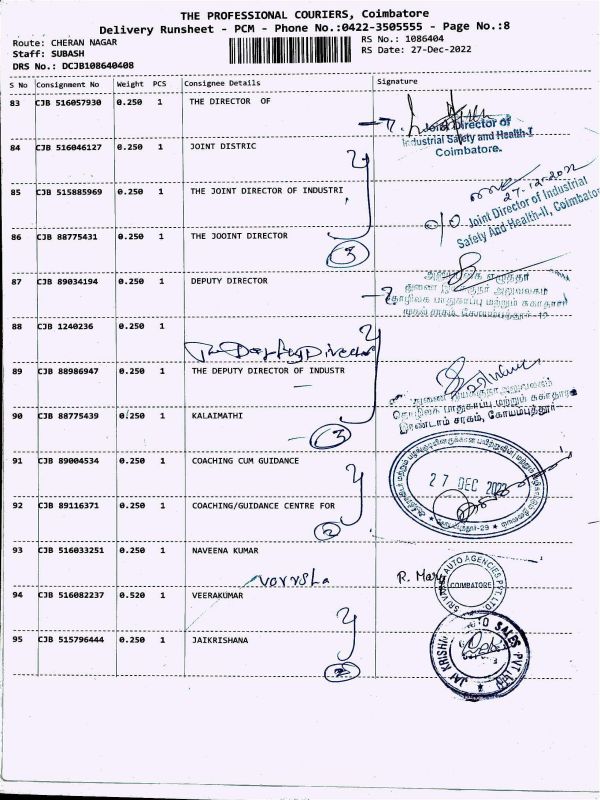 THE PROFESSIONAL COURIERS, Coimbatore
Delivery Runsheet - PCM - Phone No.:0422-3505555 - Page No.:8
Route: CHERAN NAGAR
RS No.: 1086404
Staff: SUBASH
RS Date: 27-Dec-2022
DRS No.: DCJB108640408
S No Consignment No Weight PCS Consignee Details Signature
83 CJB 516057930 0.250 1 THE DIRECTOR OF
Joint Director of
Industrial Safety and Health-I
Coimbatore.
84 CJB 516046127 0.250 1 JOINT DISTRIC
85 CJB 515885969 0.250 1 THE JOINT DIRECTOR OF INDUSTRI
27-12-2022
O/O Joint Director of Industrial
Safety And Health-II, Coimbatore
86 CJB 88775431 0.250 1 THE JOOINT DIRECTOR
3
87 CJB 89034194 0.250 1 DEPUTY DIRECTOR
தொழிலக பாதுகாப்பு மற்றும் சுகாதாரம்
88 CJB 1240236 0.250 1
The Deputy Director
89 CJB 88986947 0.250 1 THE DEPUTY DIRECTOR OF INDUSTR
தொழிலக பாதுகாப்பு மற்றும் சுகாதாரம்
இரண்டாம் சரகம், கோயம்புத்தூர்
90 CJB 88775439 0.250 1 KALAIMATHI
3
91 CJB 89004534 0.250 1 COACHING CUM GUIDANCE
27 DEC 2022
92 CJB 89116371 0.250 1 COACHING/GUIDANCE CENTRE FOR
2
93 CJB 516033251 0.250 1 NAVEENA KUMAR
R. Mary
AUTO AGENCIES PVT LTD
COIMBATORE
94 CJB 516082237 0.520 1 VEERAKUMAR
95 CJB 515796444 0.250 1 JAIKRISHANA
JAI KRISHNA AUTO SALES PVT LTD
2